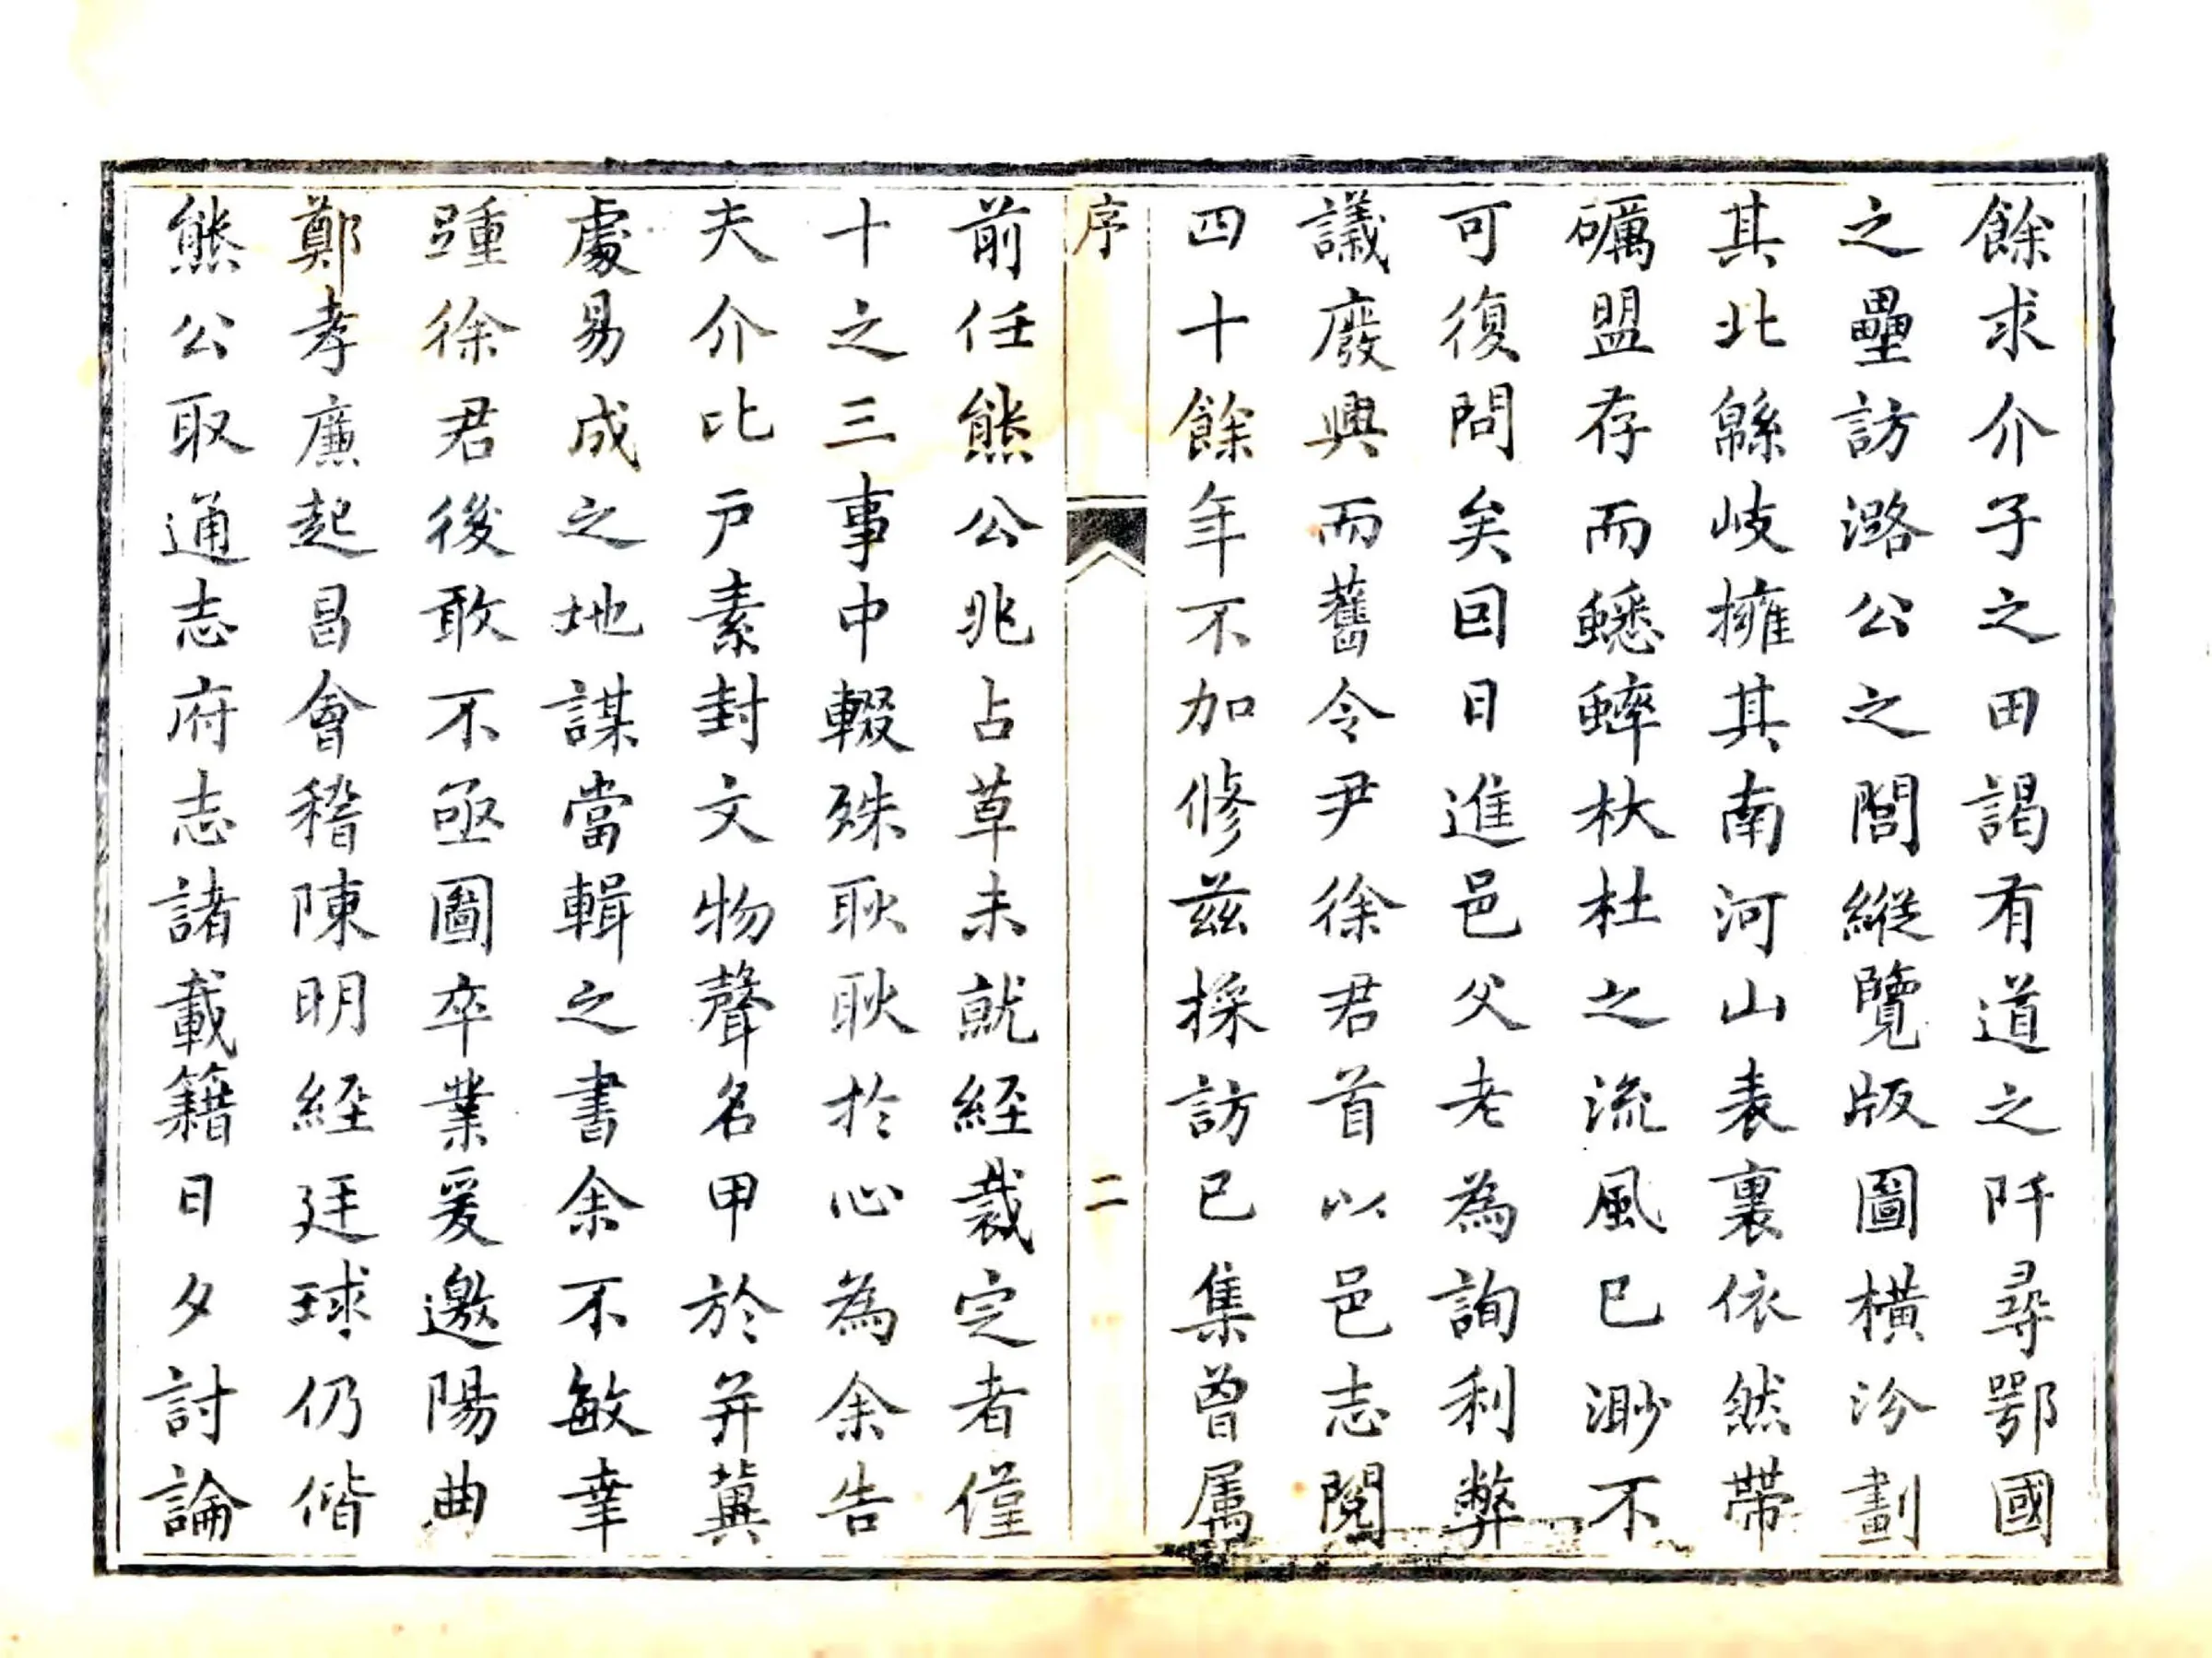 餘求介子之田謁有道之阡尋鄂國
之壘訪潞公之閭縱覽版圖橫汾劃
其北緜岐擁其南河山表裏依然帶
礪盟存而蟋蟀杕杜之流風已渺不
可復問矣囙日進邑父老為詢利弊
議廢興而舊令尹徐君首以邑志閱
四十餘年不加修兹採訪已集曾属
序
二
前任熊公兆占草未就經裁定者僅
十之三事中輟殊耿耿於心為余告
夫介比户素封文物聲名甲於并冀
處易成之地謀當輯之書余不敏幸
踵徐君後敢不亟圖卒業爰邀陽曲
鄭孝廉起昌會稽陳明經廷球仍偕
熊公取通志府志諸載籍日夕討論